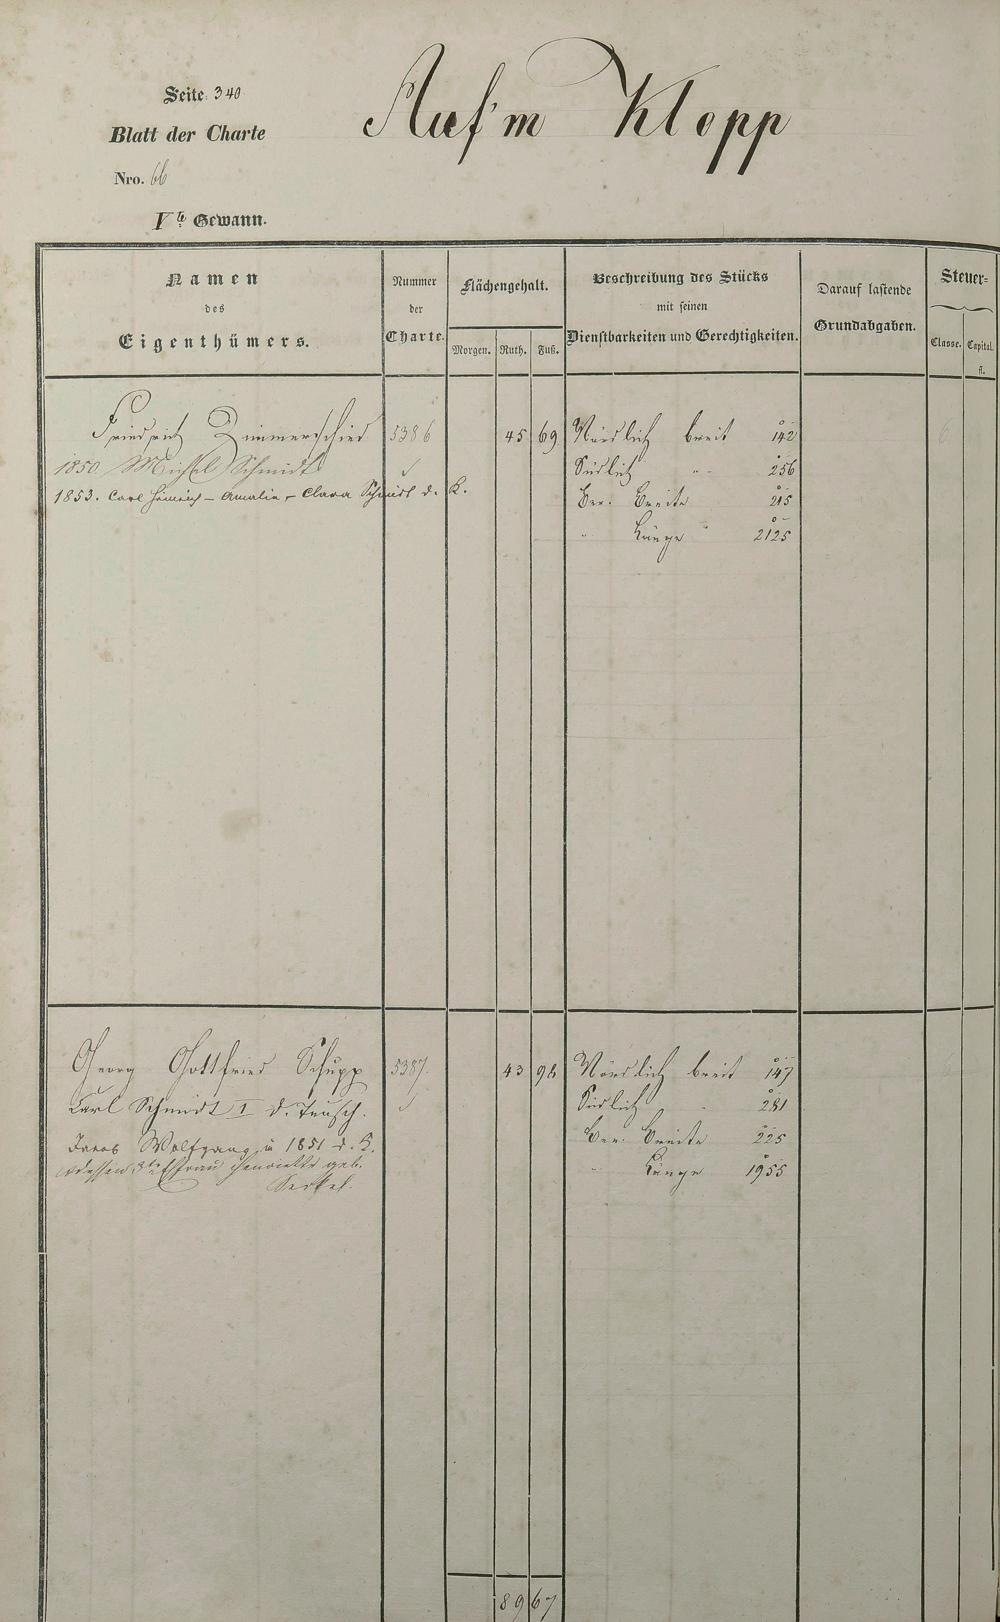 Seite 340
Auf'm Klopp
Blatt der Charte
Nro. 66
Vte Gewann.
Namen
des
Eigenthümers.
Nummer
der
Charte.
Flächengehalt.
Morgen. Ruth. Fuß.
Beschreibung des Stücks
mit seinen
Dienstbarkeiten und Gerechtigkeiten.
Darauf lastende
Grundabgaben.
Steuer-
Classe. Capital.
fl.
Friedrich Zimmerschied 5386 45 69 Nördlich breit 142 6
1850 Michel Schmidt Südlich " 256
1853. Carl Heinrich - Amalie - Clara Schmidt d. K. Ber. Breite 215
" Länge " 2125
Georg Gottfried Schupp 5387. 43 98 Nördlich breit 147
Karl Schmidt I d. Tausch. Südlich " 281
Jacob Wolfgang 1851 d. K. Ber. Breite 225
dessen Ehefrau Henriette geb. " Länge 1955
89 67